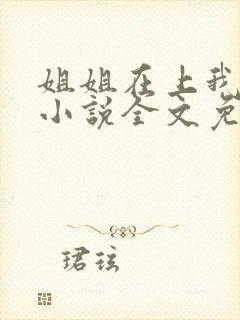 姐姐在上我
小说全文免
珺玹